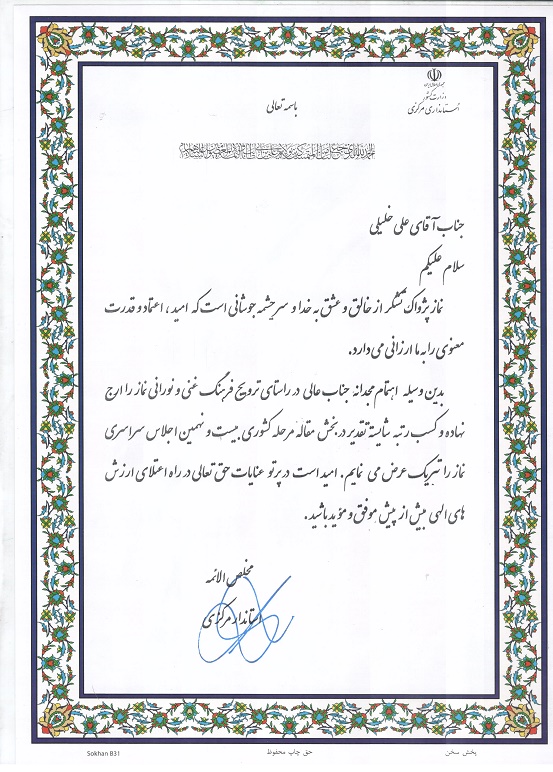 جمهوری اسلامی ایران
وزارت کشور
استانداری مرکزی
باسمه تعالی
جناب آقای علی خلیلی
سلام علیکم
نماز پژواک تشکر از خالق و عشق به خدا و سرچشمه جوشانی است که امید ، اعتماد و قدرت
معنوی را به ما ارزانی می دارد.
بدین وسیله اهتمام مجدانه جناب عالی در راستای ترویج فرهنگ غنی و نورانی نماز را ارج
نهاده و کسب رتبه شایسته تقدیر در بخش مقاله مرحله کشوری بیست و نهمین اجلاس سراسری
نماز را تبریک عرض می نمایم. امید است در پرتو عنایات حق تعالی در راه اعتلای ارزش
های الهی بیش از پیش موفق و مؤید باشید .
مخلص الائمه
استاندار مرکزی
پخش سخن
حق چاپ محفوظ
Sokhan B31